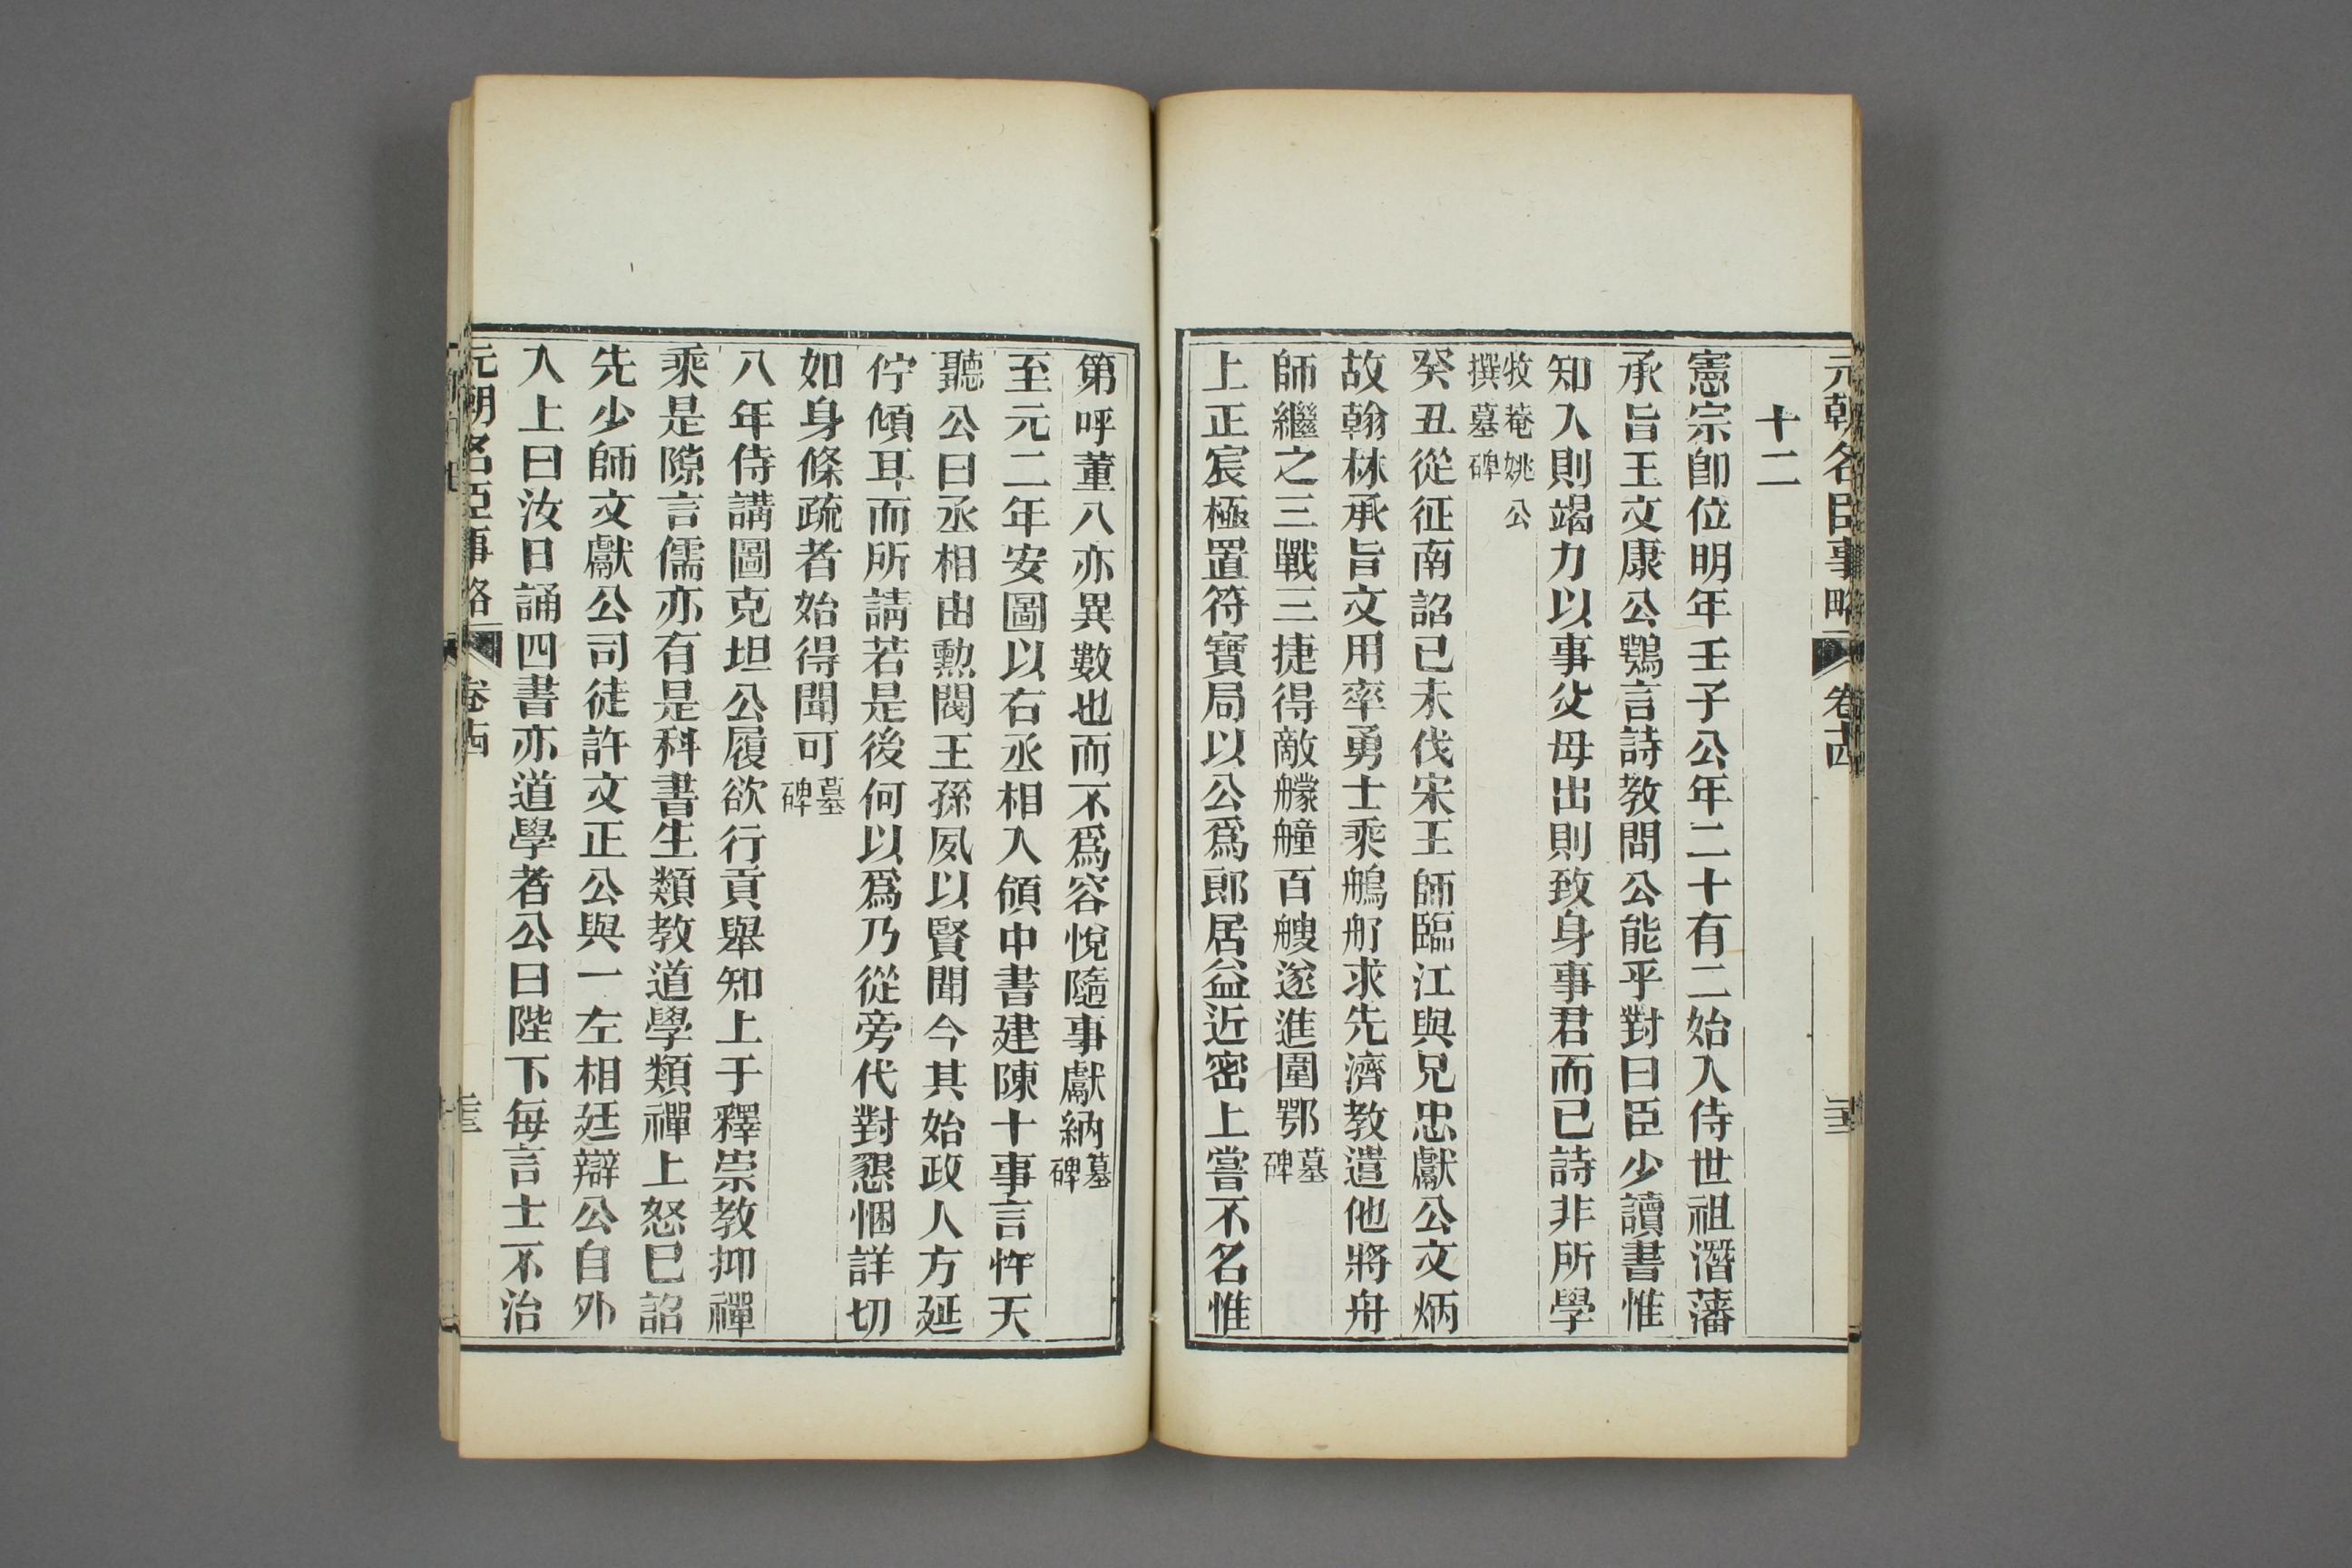 元朝名臣事略 卷十四
十二
憲宗卽位明年壬子公年二十有二始入侍世祖潛藩
承旨王文康公鶚言詩教問公能乎對曰臣少讀書惟
知入則竭力以事父母出則致身事君而已詩非所學
牧菴姚公
撰墓碑
癸丑從征南詔已未伐宋王師臨江與兄忠獻公文炳
故翰林承旨文用率勇士乘鵃舠求先濟教遣他將舟
師繼之三戰三捷得敵艨艟百艘遂進圍鄂墓碑
上正宸極置符寶局以公爲郎居益近密上嘗不名惟
第呼董八亦異數也而不爲容悅隨事獻納墓碑
至元二年安圖以右丞相入領中書建陳十事言忤天
聽公曰丞相由勲閥王孫夙以賢聞今其始政人方延
佇傾耳而所請若是後何以爲乃從旁代對懇悃詳切
如身條疏者始得聞可墓碑
八年侍講圖克坦公履欲行貢舉知上于釋崇教抑禪
乘是隙言儒亦有是科書生類教道學類禪上怒已詔
先少師文獻公司徒許文正公與一左相廷辯公自外
入上曰汝日誦四書亦道學者公曰陛下每言士不治
元朝名臣事略 卷十四